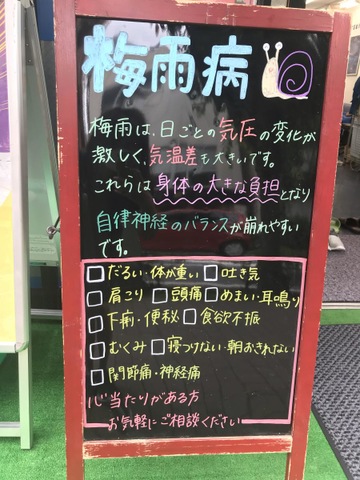 梅雨病
梅雨は、日ごとの気圧の変化が
激しく、気温差も大きいです。
これらは身体の大きな負担となり
自律神経のバランスが崩れやすい
です。
□だるい・体が重い □吐き気
□肩こり □頭痛 □めまい・耳鳴り
□下痢・便秘 □食欲不振
□むくみ □寝つけない・朝おきれない
□関節痛・神経痛
心当たりがある方
お気軽にご相談ください